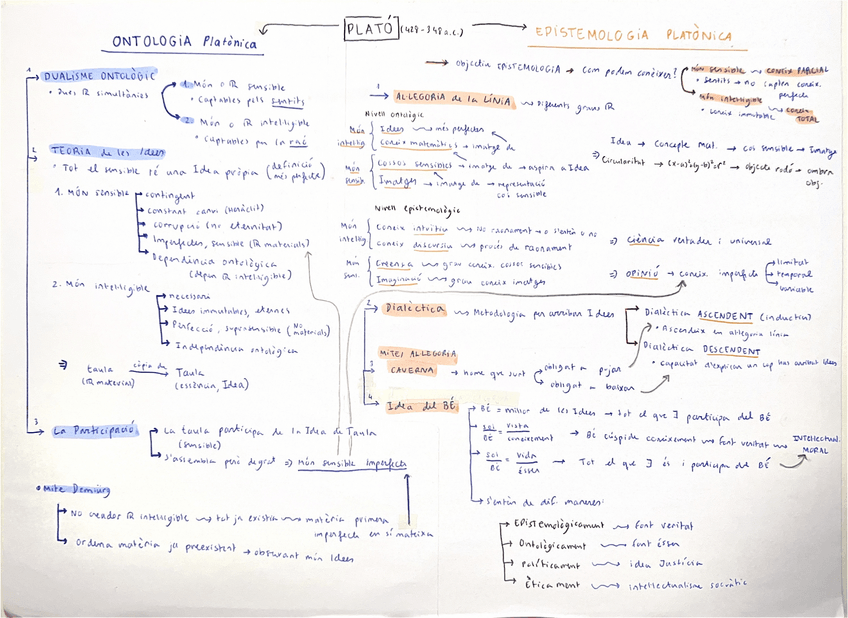 PLATÓ (428-348 a.C.)
ONTOLOGIA Platònica
1 DUALISME ONTOLÒGIC
• Dues R simultànies
1. Món o R sensible
• Captables pels sentits
2. Món o R intel·ligible
• Captables per la raó
2 TEORIA de les Idees
• Tot el sensible té una Idea pròpia (definició més perfecte)
1. MÓN sensible
contingent
constant canvi (Heràclit)
corrupció (no eternitat)
Imperfecte, sensible (R materials)
Dependència ontològica
(depèn R intel·ligible)
2. Món intel·ligible
necessari
Idees immutables, eternes
Perfecció, suprasensible (No materials)
Independència ontològica
⇒ taula còpia de → Taula
(R material) (essència, Idea)
3 La Participació
La taula participa de la Idea de Taula
(sensible)
S'assembla però degrat ⇒ Món sensible Imperfecte
• Mite Demiürg
No creador R intel·ligible → tot ja existia → matèria primera
imperfecte en sí mateixa
Ordena matèria ja preexistent → observant món Idees
EPISTEMOLOGIA PLATÒNICA
→ objectiu EPISTEMOLOGIA → Com podem conèixer?
món sensible → coneix PARCIAL
• Sentits → no capten coneix. perfecte
món intel·ligible → coneix TOTAL
• Coneix immutable
1 AL·LEGORIA de la LÍNIA → diferents graus R
Nivell ontològic
Món intel·lig
Idees → més perfectes
Coneix matemàtics → imatge de
Món sensib
Cossos sensibles → imatge de → aspira a Idea
Imatges → imatge de → representació
cos sensible
Idea → Concepte Mat. → cos sensible → Imatge
⇒ Circularitat → (x-a)²+(y-b)²=r² → objecte rodó → ombra obj.
Nivell epistemològic
Món intel·lig
Coneix intuïtiu → No raonament → o s'entén o no
coneix discursiu → procés de raonament
⇒ Ciència vertader i universal
Món sens.
Creença → grau coneix. cossos sensibles
Imaginació → grau coneix imatges
⇒ OPINIÓ → coneix. imperfecte
limitat
temporal
variable
2 Dialèctica → Metodologia per arribar Idees
Dialèctica ASCENDENT (inductiu)
• Ascendeix en al·legoria línia
Dialèctica DESCENDENT
• capacitat d'explicar un cop has arribat Idees
3 MITE AL·LEGORIA
CAVERNA → home que surt
obligat a pujar
obligat a baixar
4 Idea del BÉ
BÉ = millor de les Idees → Tot el que ∃ participa del BÉ
Sol/BÉ = vista/coneixement → Bé cúspide coneixement → font veritat → INTEL·LECTUAL. MORAL
Sol/BÉ = Vida/ésser → Tot el que ∃ és i participa del BÉ
s'entén de dif. maneres:
Epistemològicament → font veritat
Ontològicament → font ésser
Políticament → idea Justícia
Èticament → Intel·lectualisme socràtic